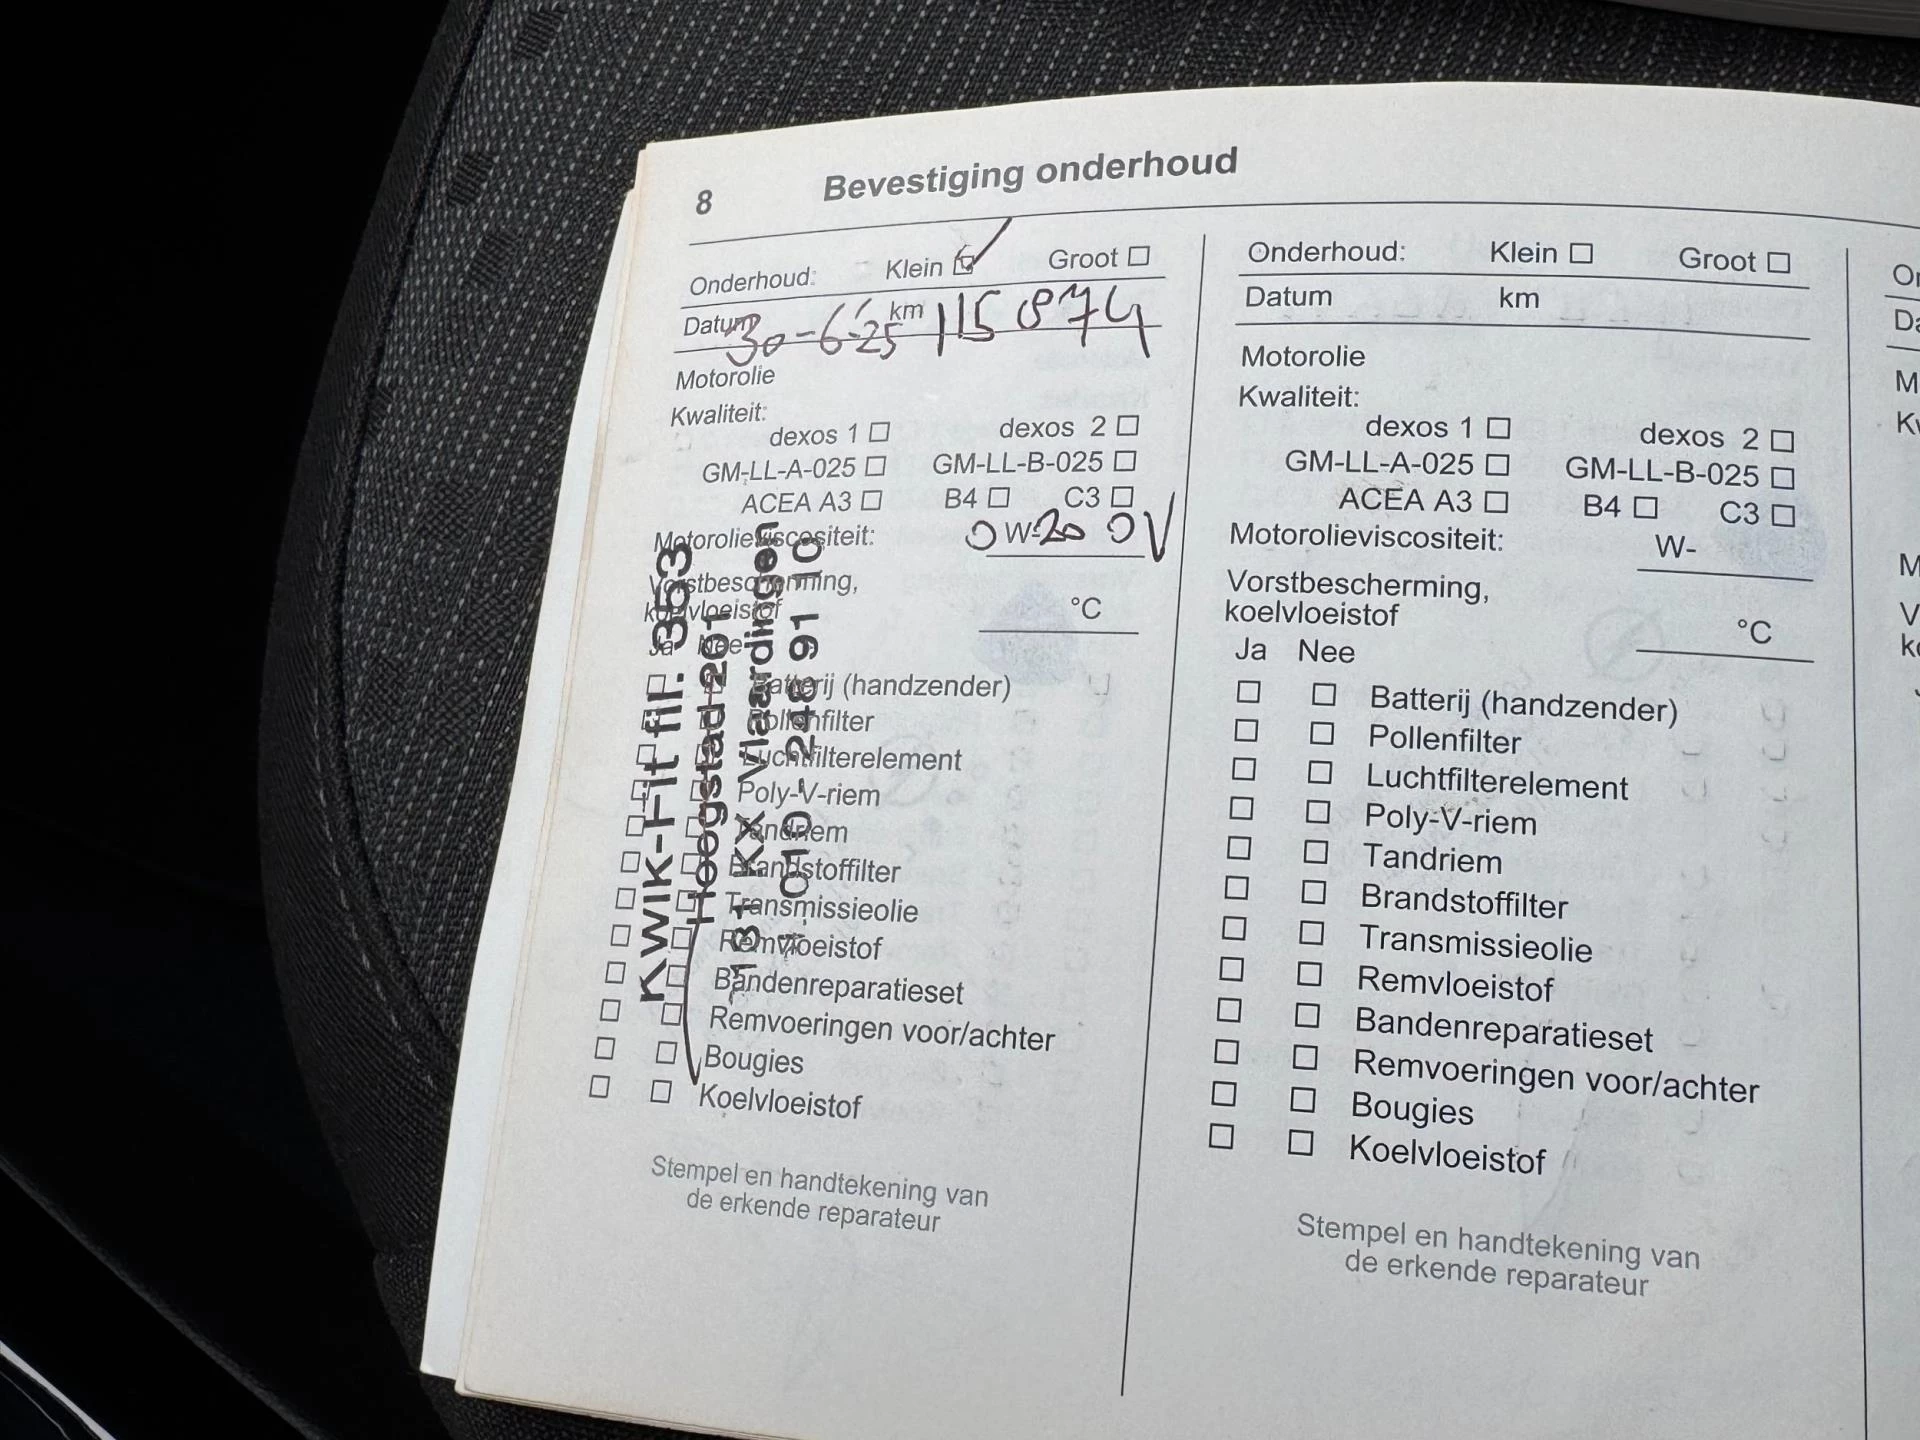 8 Bevestiging onderhoud
Onderhoud: Klein ☑ Groot ☐
Datum 30-6-25 km 115 874
Motorolie
Kwaliteit:
dexos 1 ☐ dexos 2 ☐
GM-LL-A-025 ☐ GM-LL-B-025 ☐
ACEA A3 ☐ B4 ☐ C3 ☐
Motorolieviscositeit: 0 W-20
Vorstbescherming,
koelvloeistof °C
Ja Nee
☐ ☐ Batterij (handzender)
☐ ☐ Pollenfilter
☐ ☐ Luchtfilterelement
☐ ☐ Poly-V-riem
☐ ☐ Tandriem
☐ ☐ Brandstoffilter
☐ ☐ Transmissieolie
☐ ☐ Remvloeistof
☐ ☐ Bandenreparatieset
☐ ☐ Remvoeringen voor/achter
☐ ☐ Bougies
☐ ☐ Koelvloeistof
Stempel en handtekening van
de erkende reparateur
Kwik-Fit fil. 353
Hoogstad 261
3131 KX Vlaardingen
010 - 248 91 10
Onderhoud: Klein ☐ Groot ☐
Datum km
Motorolie
Kwaliteit:
dexos 1 ☐ dexos 2 ☐
GM-LL-A-025 ☐ GM-LL-B-025 ☐
ACEA A3 ☐ B4 ☐ C3 ☐
Motorolieviscositeit: W-
Vorstbescherming,
koelvloeistof °C
Ja Nee
☐ ☐ Batterij (handzender)
☐ ☐ Pollenfilter
☐ ☐ Luchtfilterelement
☐ ☐ Poly-V-riem
☐ ☐ Tandriem
☐ ☐ Brandstoffilter
☐ ☐ Transmissieolie
☐ ☐ Remvloeistof
☐ ☐ Bandenreparatieset
☐ ☐ Remvoeringen voor/achter
☐ ☐ Bougies
☐ ☐ Koelvloeistof
Stempel en handtekening van
de erkende reparateur